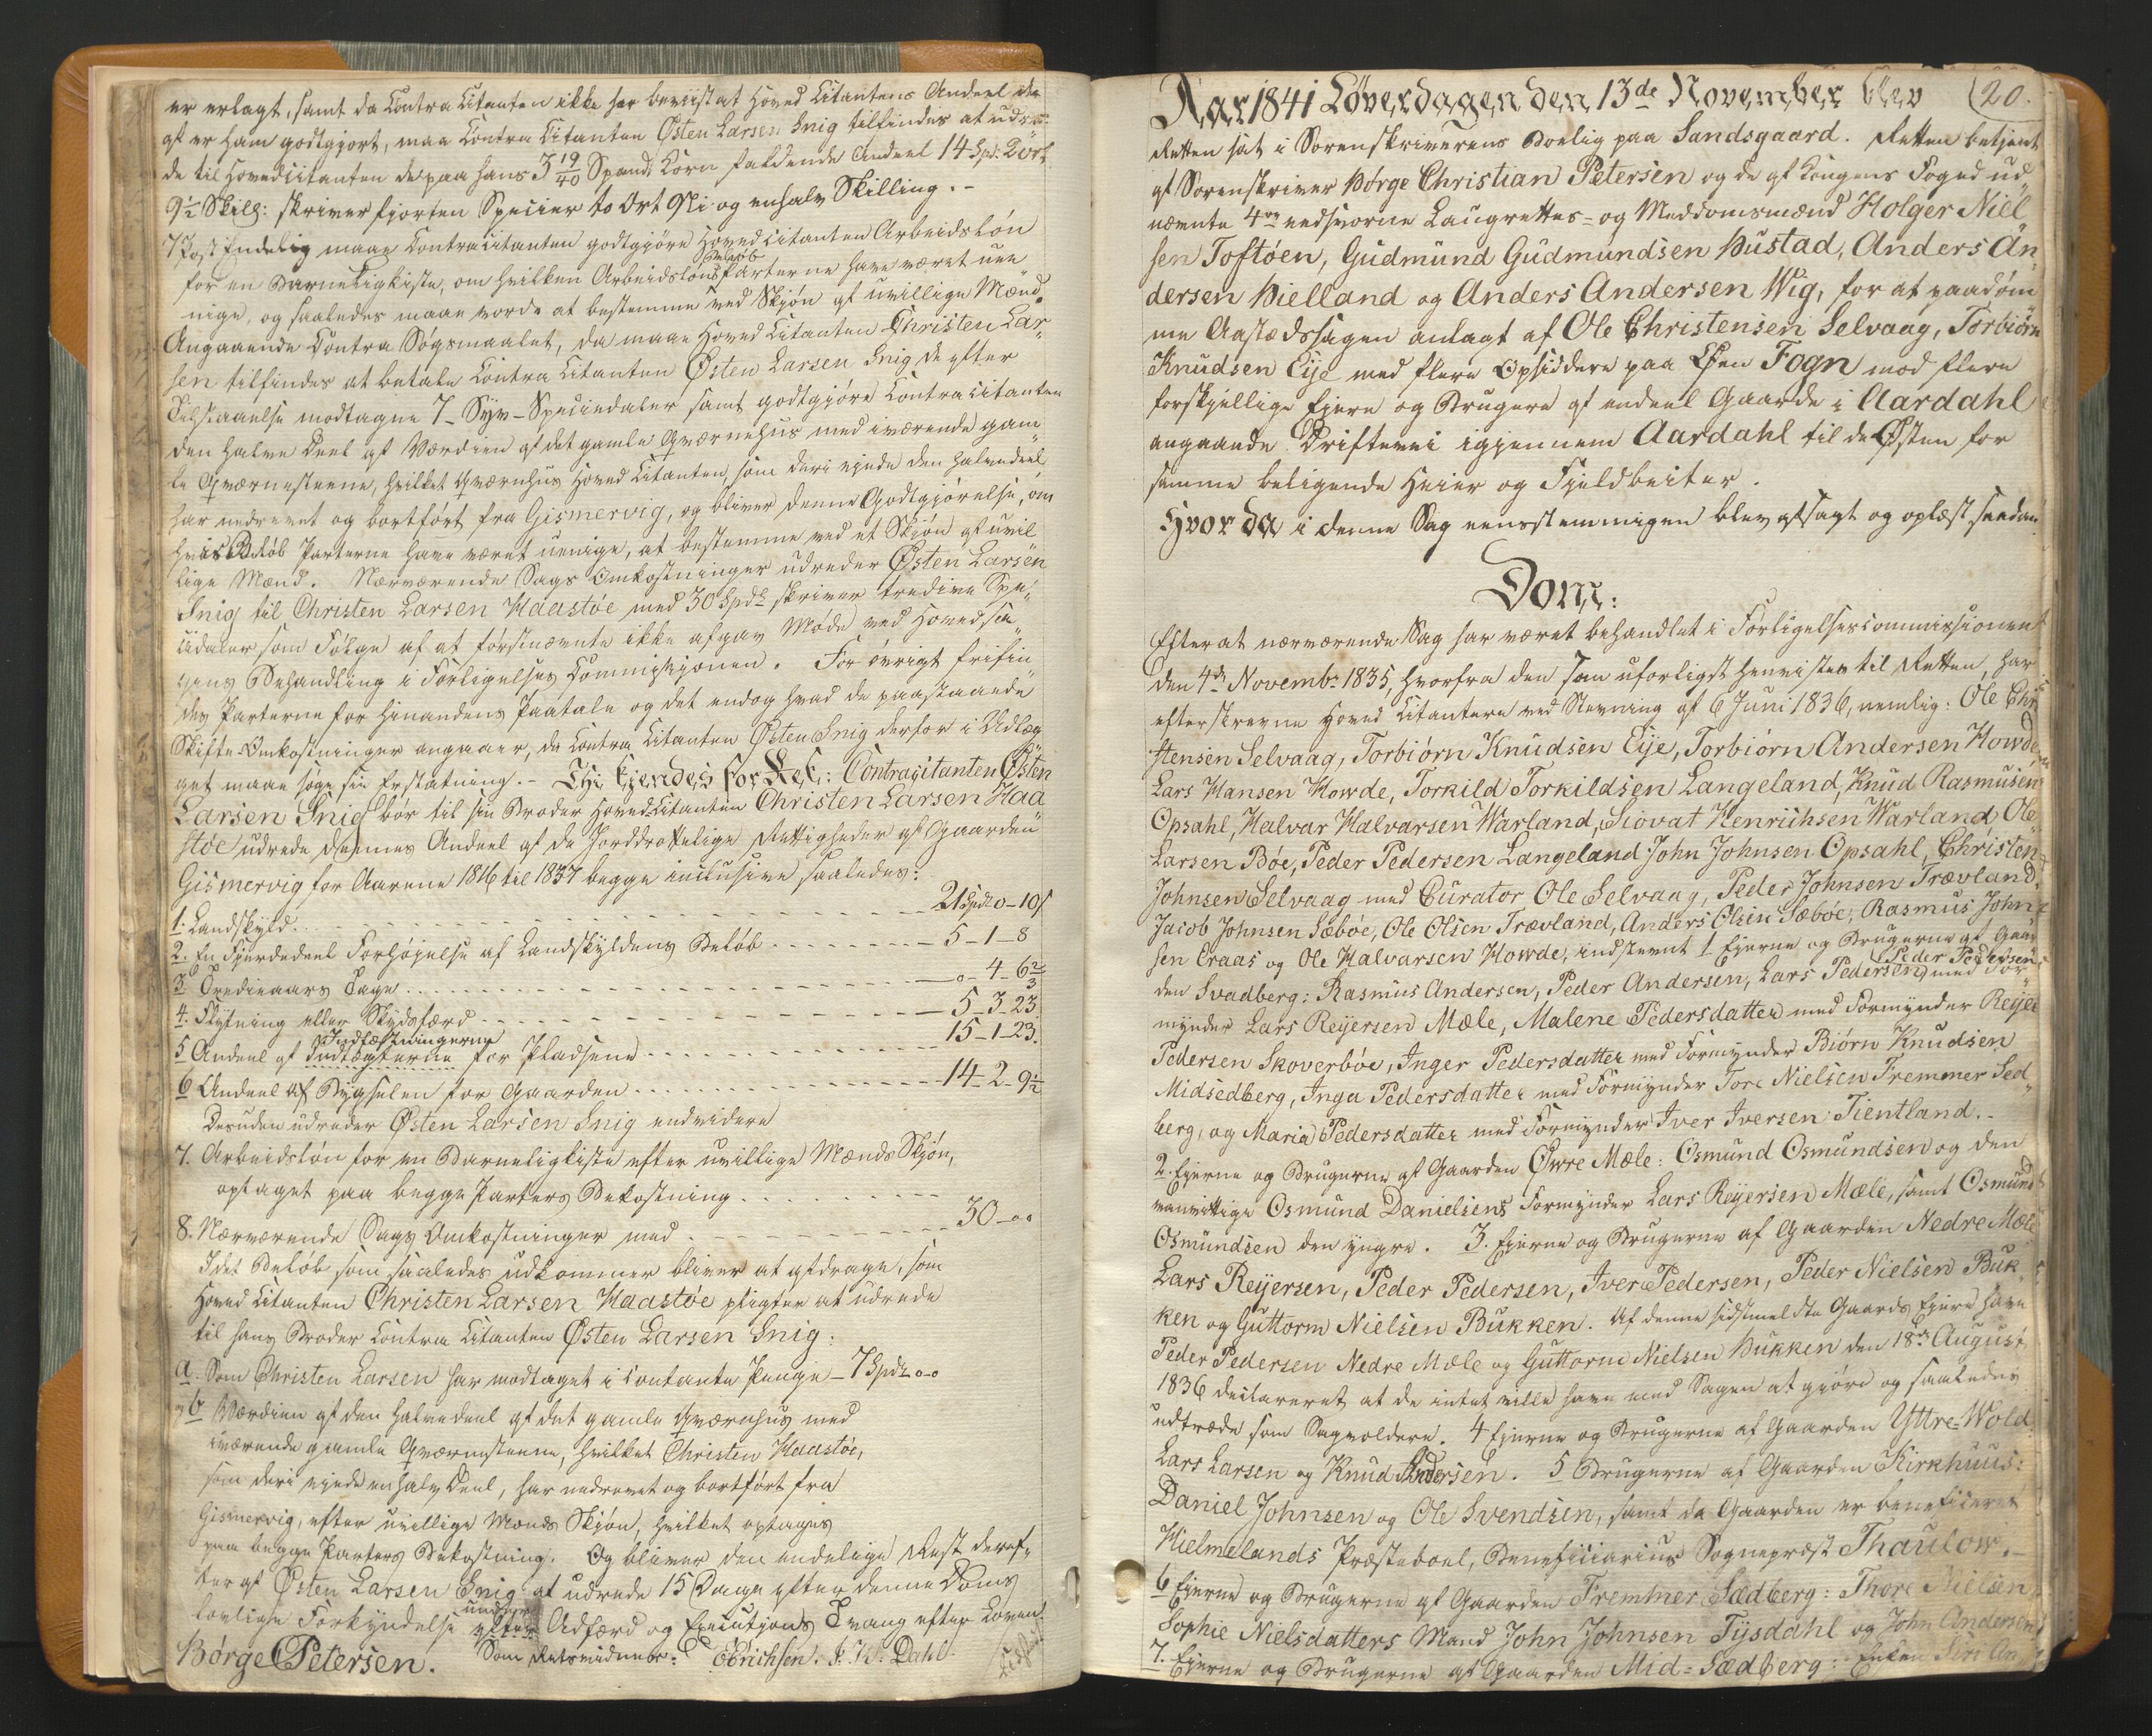 er erlagt, samt da Contra Citanten ikke har beviist at Hoved Citantens Andeel der
af er ham godtgjort, maa Contra Citanten Østen Larsen Snig tilfindes at udre-
de til Hovedcitanten de paa hans 3 19/40 Spand Korn faldende Andeel 14 Spd: 2 ort
9½ Skill: skriver fjorten Specier to Ort Ni og en halv Skilling. -
7 Post Endelig maae Contracitanten godtgjøre Hoved Citanten Arbeidsløn
for en Barneligkiste, om hvilken Arbeidsløns Beløb Parterne have været uee-
nige, og saaledes maae vorde at bestemme ved Skjøn af uvillige Mænd.
Angaaende Contra Søgsmaalet, da maae Hoved Citanten Christen Lar-
sen tilfindes at betale Contra Citanten Østen Larsen Snig de efter
Tilstaaelse modtagne 7 - Syv - Speciedaler samt godtgjøre Contracitanten
den halve Deel af Værdien af det gamle Qværnehus med iværende gam-
le Qværnesteene, hvilket Qværnhus Hoved Citanten, som deri eiede den halvedeel
har nedrevet og bortført fra Gismervig, og bliver denne Godtgjørelse, om
hvis Beløb Parterne have været uenige, at bestemme ved et Skjøn af uvil
lige Mænd. Nærværende Sags Omkostninger udreder Østen Larsen
Snig til Christen Larsen Haastøe med 30 Spdr skriver tredive Spe-
ciedaler som Følge af at førstnævnte ikke afgav Møde ved Hovedsa-
gens Behandling i Forligelses Commissionen. For øvrigt frifin
des Parterne for hinandens Paatale og det endog hvad de paastaaede
Skifte-Omkostninger angaaer, da Contra Citanten Østen Snig derfor i Udlæg
get maae søge sin Erstatning. - Thi kjendes for Ret: Contracitanten Østen
Larsen Snig bør til sin Broder Hoved Citanten Christen Larsen Haa
støe udrede dennes Andeel af de Jorddrottelige Rettigheder af Gaarden
Gismervig for Aarene 1816 til 1837 begge inclusive saaledes:
1. Landskyld - - - 21 Spdr 0 - 10 ß
2. En Fjerdedeel Forhøjelse af Landskyldens Beløb - - - 5 - 1 - 8
3. Tredieaars Tage - - - 0 - 4 - 6 2/3
4. Flytning eller Skydsfærd - - - 5 - 3 - 23.
5 Andeel af Indtægterne Indfæstningerne for Pladsene - - - 15 - 1 - 23.
6 Andeel af Bygselen for Gaarden - - - 14 - 2 - 9½
Desuden udreder Østen Larsen Snig endvidere
7. Arbeidsløn for en Barneligkiste efter uvillige Mænds Skjøn,
optaget paa begge Parters Bekostning - - -
8. Nærværende Sags Omkostninger med - - - 30 - 0 0
I det Beløb som saaledes udkommer bliver at afdrage, som
Hoved Citanten Christen Larsen Haastøe pligter at udrede
til hans Broder Contra Citanten Østen Larsen Snig:
a. Som Christen Larsen har modtaget i contante Penge - 7 Spdr 0-0
og b Værdien af den halvedeel af det gamle Qværnhus med
iværende gamle Qværnsteene, hvilket Christen Haastøe,
som deri eiede en halv Deel, har nedrevet og bortført fra
Gismervig, efter uvillige Mænds Skjøn, hvilket optages
paa begge Parters Bekostning. Og bliver den endelige Rest deref-
ter af Østen Larsen Snig at udrede 15 Dage efter denne Doms
lovlige Forkyndelse efter under Adfærd og Executions Tvang efter Loven.
Børge Petersen. Som Retsvidner: Erichsen. Dahl.
20.
Aar 1841 Løverdagen den 13de November blev
Retten sat i Sorenskriverens Boelig paa Sandsgaard. Retten betjent
af Sorenskriver Børge Christian Petersen og de af Kongens Foged ud
nævnte 4re eedsvorne Laugrettes- og Meddomsmænd Holger Niel
sen Toftøen, Gudmund Gudmundsen Hustad, Anders An
dersen Hielland og Anders Andersen Wig, for at paadøm
me Aastædssagen anlagt af Ole Christensen Selvaag, Torbiørn
Knudsen Eije med flere Opsiddere paa Øen Fogn mod flere
forskjellige Ejere og Brugere af endeel Gaarde i Aardahl
angaaende Driftevei igjennem Aardahl til de Østen for
samme beligende Heier og Fjeldbeiter.
Hvor da i denne Sag eensstemmigen blev afsagt og oplæst saadan
Dom:
Efter at nærværende Sag har været behandlet i Forligelsescommissionen
den 4de Novembr 1835, hvorfra den som uforligt henvistes til Retten, har
efterskrevne Hoved Citantere ved Stevning af 6 Juni 1836, nemlig: Ole Chri
stensen Selvaag, Torbiørn Knudsen Eije, Torbiørn Andersen Howde,
Lars Hansen Howde, Torkild Torkildsen Langeland, Knud Rasmusen
Opsahl, Halvar Halvarsen Warland, Siovat Henrichsen Warland, Ole
Larsen Bøe, Peder Pedersen Langeland, John Johnsen Opsahl, Christen
Johnsen Selvaag med Curator Ole Selvaag, Peder Johnsen Trævland,
Jacob Johnsen Sæbøe, Ole Olsen Trævland, Anders Olsen Sæbøe, Rasmus John
sen Eraas og Ole Halvarsen Howde, indstevnt 1. Ejerne og Brugerne af Gaar
den Svadberg: Rasmus Andersen, Peder Andersen, Lars Pedersen, Peder Pedersen med For
mynder Lars Reijersen Mæle, Malene Pedersdatter med Formynder Reijer
Pedersen Skoverbøe, Inger Pedersdatter med Formynder Biørn Knudsen
Midsedberg, Inga Pedersdatter med Formynder Tore Nielsen Fremmer Sed
berg, og Maria Pedersdatter med Formynder Iver Iversen Tientland. -
2. Ejerne og Brugerne af Gaarden Øwre Mæle: Osmund Osmundsen og den
vanvittige Osmund Danielsens Formynder Lars Reijersen Mæle, samt Osmund
Osmundsen den yngre. 3. Ejerne og Brugerne af Gaarden Nedre Mæle
Lars Reijersen, Peder Pedersen, Iver Pedersen, Peder Nielsen Buk
ken og Guttorm Nielsen Bukken. Af denne sidstmeldte Gaards Ejere have
Peder Pedersen Nedre Mæle og Guttorm Nielsen Bukken den 18de August
1836 declareret at de intet ville have med Sagen at gjøre og saaledes
udtræde som Sagvoldere. 4 Ejerne og Brugerne af Gaarden Yttre-Wold
Lars Larsen og Knud Andersen. 5 Brugerne af Gaarden Kirkhuus:
Daniel Johnsen og Ole Svendsen, samt da Gaarden er beneficeret
Hielmelands Præsteboel, Beneficiarius Sognepræst Thaulow. -
6 Ejerne og Brugerne af Gaarden Fremmer Sædberg: Thore Nielsen
Sophie Nielsdatters Mand John Johnsen Tijsdahl og John Andersen
7. Ejerne og Brugerne af Gaarden Mid-Sædberg: Enken Siri An